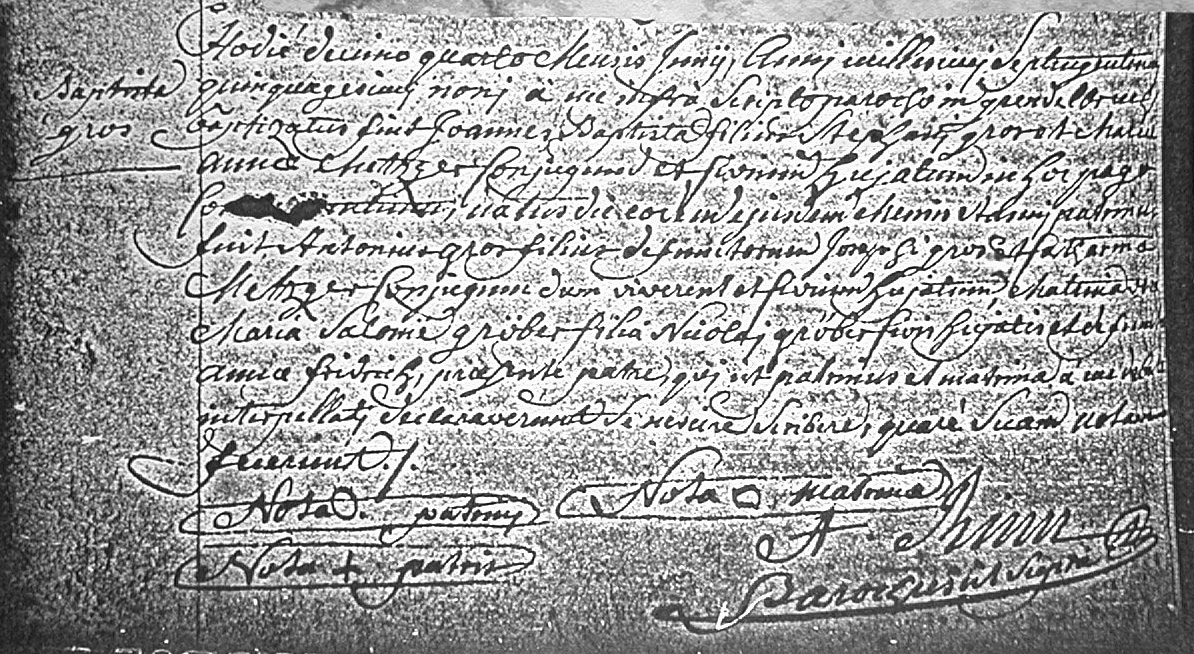 Hodiè decimo quarto Mensis Junij, Annj millesimj Septingentesimj
Baptista
gros
quinquagesimj nonj à me infrà Scripto parocho in
baptizatus fuit Joannes Baptista filius Stephanj gros et Mariæ
annæ Metzger Conjugum et Civium hujatium in hoc pago
Com, natus die eodem ejusdem Mensis et annj patrinus
fuit Antonius gros filius defunctorum Josephi gros et Catharinæ
Metzger Conjugum dum viverent et Civium hujatium, Matrina vero
Maria Salome gröber filia Nicolaj gröber Civis hujatis et defunctæ
annæ fridrich, præsente patre, qui ut patrinus et matrina à me
interpellatj declaraverunt se nescire Scribere, quarè Suam notam
fecerunt./.
Nota patrinj
Nota matrinæ
Nota + patris
Parochus ut Suprà